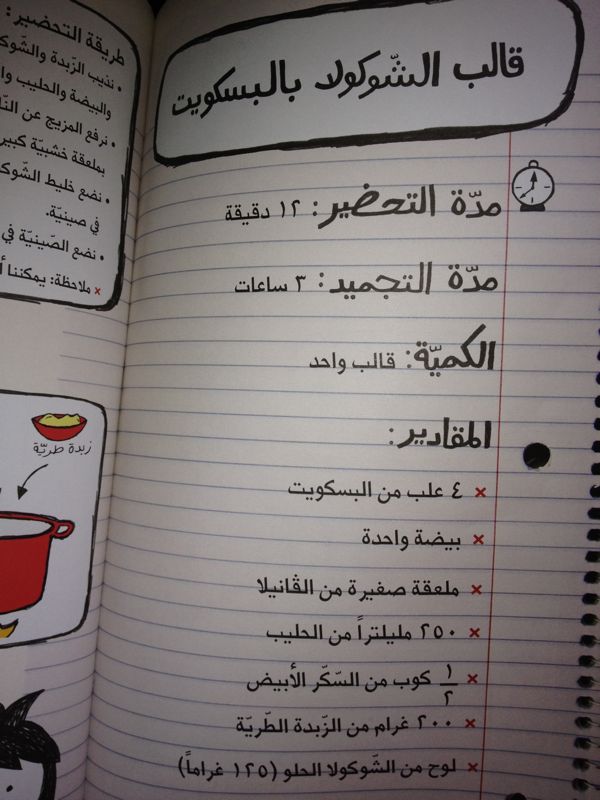 قالب الشّوكولا بالبسكويت
مدّة التحضير: ١٢ دقيقة
مدّة التجميد: ٣ ساعات
الكميّة: قالب واحد
المقادير:
× ٤ علب من البسكويت
× بيضة واحدة
× ملعقة صغيرة من الڤانيلا
× ٢٥٠ مليلتراً من الحليب
× ١/٢ كوب من السّكّر الأبيض
× ٢٠٠ غرام من الزّبدة الطّريّة
× لوح من الشّوكولا الحلو (١٢٥ غراماً)
طريقة التحضير:
• نذيب الزّبدة والشّوك
والبيضة والحليب وا
• نرفع المزيج عن النّا
بملعقة خشبيّة كبير
• نضع خليط الشّوك
في صينيّة.
• نضع الصّينيّة في
× ملاحظة: يمكننا أ
زبدة طريّة